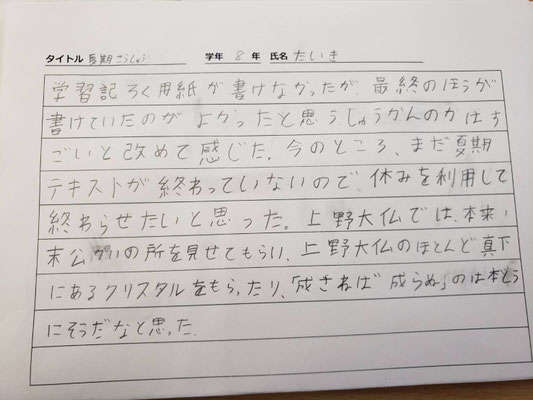 タイトル 夏期こうしゅう 学年 8 年 氏名 たいき
学習記ろく用紙が書けなかったが、最終のほうが
書けていたのがよかったと思うしゅうかんのかはす
ごいと改めて感じた。今のところ、まだ夏期
テキストが終わっていないので、休みを利用して
終わらせたいと思った。上野大仏では、本来、
末公かいの所を見せてもらい、上野大仏のほとんど真下
にあるクリスタルをもらったり、「成さねば 成らぬ」のは本とう
にそうだなと思った.